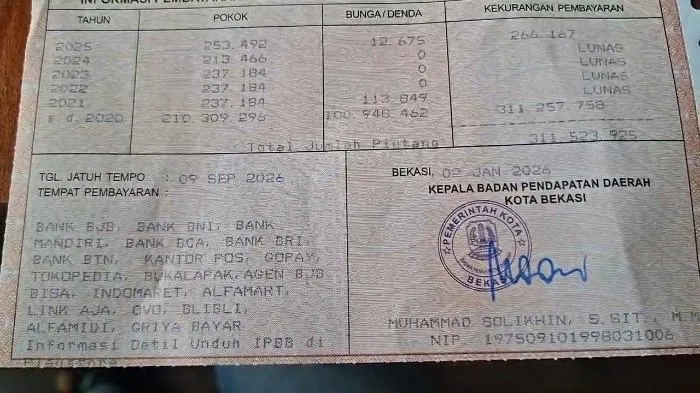 TAHUN POKOK BUNGA/DENDA KEKURANGAN PEMBAYARAN
2025 253.492 12.675 266.167
2024 213.466 0 LUNAS
2023 237.184 0 LUNAS
2022 237.184 0 LUNAS
2021 237.184 113.849 LUNAS
s.d.2020 210.309.296 100.948.462 311.257.758
Total Jumlah Piutang 311.523.925
TGL. JATUH TEMPO : 09 SEP 2026
TEMPAT PEMBAYARAN :
BANK BJB, BANK BNI, BANK
MANDIRI, BANK BCA, BANK BRI,
BANK BTN, KANTOR POS, GOPAY,
TOKOPEDIA, BUKALAPAK,AGEN BJB
BISA, INDOMARET, ALFAMART,
LINK AJA, OVO, BLIBLI,
ALFAMIDI, GRIYA BAYAR
Informasi Detil Unduh IPBB di
BEKASI, 02 JAN 2026
KEPALA BADAN PENDAPATAN DAERAH
KOTA BEKASI
PEMERINTAH KOTA
BEKASI
MUHAMMAD SOLIKHIN, S.SIT.,
NIP. 197509101998031006